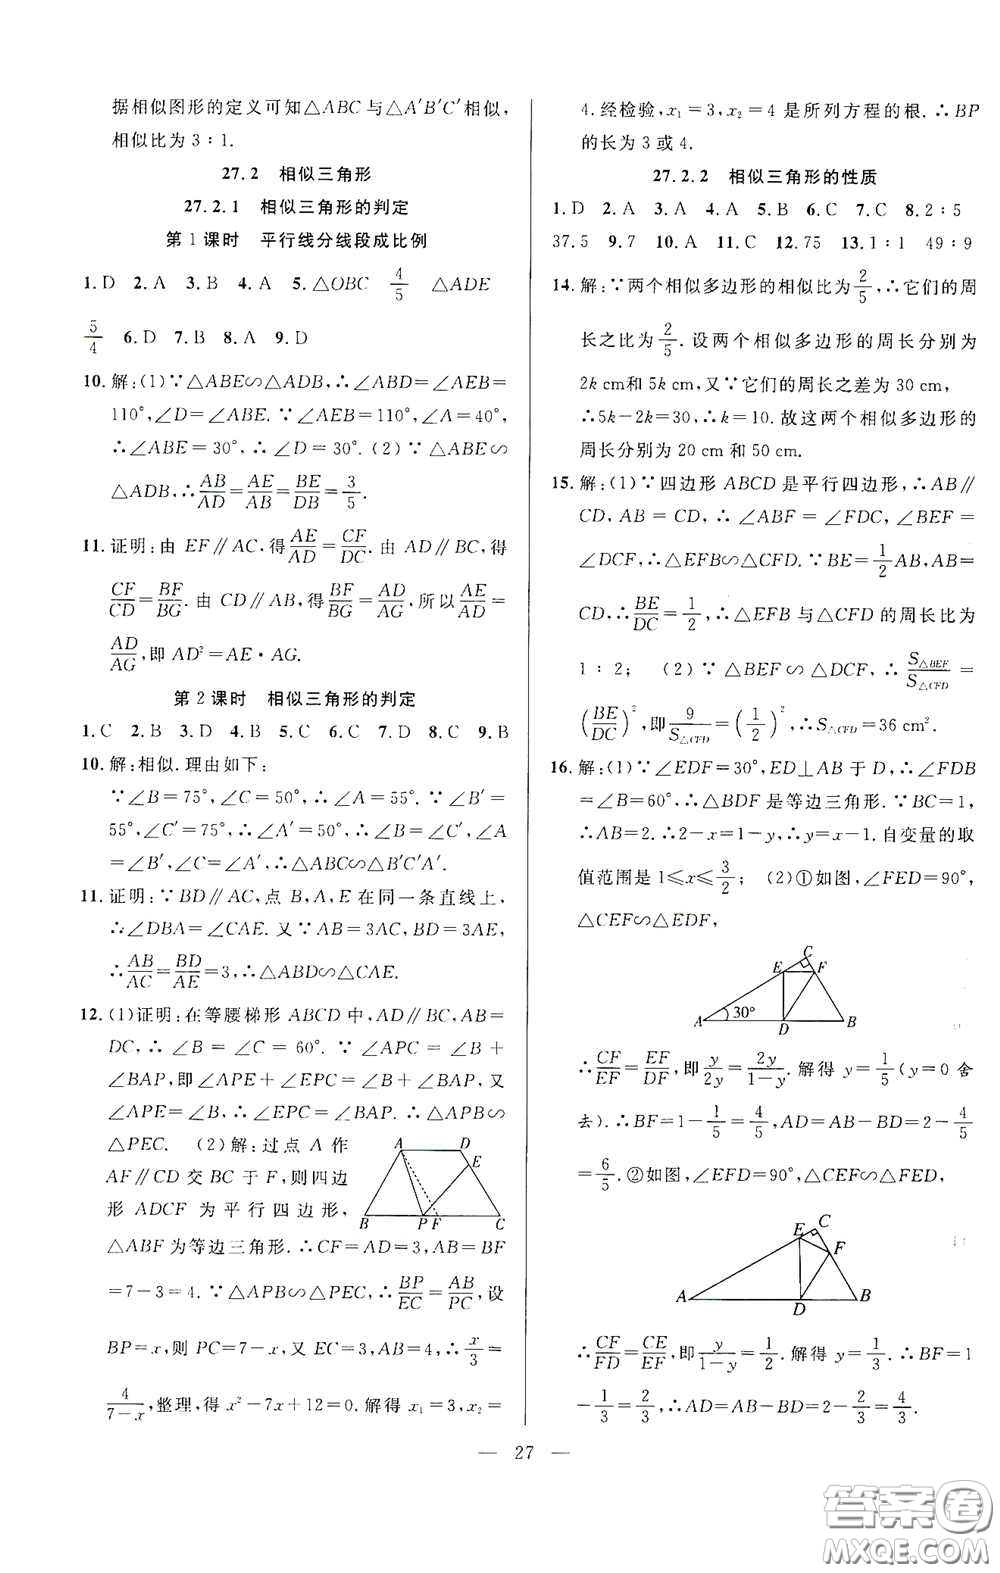 据相似图形的定义可知△ABC与△A′B′C′相似,
相似比为3∶1.
27.2 相似三角形
27.2.1 相似三角形的判定
第1课时 平行线分线段成比例
1.D 2.A 3.B 4.A 5.△OBC 4/5 △ADE
5/4 6.D 7.B 8.A 9.D
10.解:(1)∵△ABE∽△ADB,∴∠ABD=∠AEB=
110°,∠D=∠ABE.∵∠AEB=110°,∠A=40°,
∴∠ABE=30°,∴∠D=30°.(2)∵△ABE∽
△ADB,∴AB/AD=AE/AB=BE/DB=3/5.
11.证明:由EF∥AC,得AE/AD=CF/DC.由AD∥BC,得
CF/CD=BF/BG.由CD∥AB,得BF/BG=AD/AG,所以AE/AD=
AD/AG,即AD²=AE·AG.
第2课时 相似三角形的判定
1.C 2.B 3.D 4.B 5.C 6.C 7.B 8.C 9.B
10.解:相似.理由如下:
∵∠B=75°,∠C=50°,∴∠A=55°.∵∠B′=
55°,∠C′=75°,∴∠A′=50°,∴∠B=∠C′,∠A
=∠B′,∠C=∠A′,∴△ABC∽△B′C′A′.
11.证明:∵BD∥AC,点B,A,E在同一条直线上,
∴∠DBA=∠CAE.又∵AB=3AC,BD=3AE,
∴AB/AC=BD/AE=3,∴△ABD∽△CAE.
12.(1)证明:在等腰梯形ABCD中,AD∥BC,AB=
DC,∴∠B=∠C=60°.∵∠APC=∠B+
∠BAP,即∠APE+∠EPC=∠B+∠BAP,又
∠APE=∠B,∴∠EPC=∠BAP.∴△APB∽
△PEC. (2)解:过点A作
AF∥CD交BC于F,则四边
形ADCF为平行四边形,
△ABF为等边三角形.∴CF=AD=3,AB=BF
=7-3=4.∵△APB∽△PEC,∴BP/EC=AB/PC,设
BP=x,则PC=7-x,又EC=3,AB=4,∴x/3=
4/(7-x),整理,得x²-7x+12=0.解得x₁=3,x₂=
A D
E
B P F C
4.经检验,x₁=3,x₂=4是所列方程的根.∴BP
的长为3或4.
27.2.2 相似三角形的性质
1.D 2.A 3.A 4.A 5.B 6.C 7.C 8.2∶5
37.5 9.7 10.A 11.C 12.75 13.1∶1 49∶9
14.解:∵两个相似多边形的相似比为2/5,∴它们的周
长之比为2/5.设两个相似多边形的周长分别为
2k cm和5k cm,又∵它们的周长之差为30 cm,
∴5k-2k=30,∴k=10.故这两个相似多边形的
周长分别为20 cm和50 cm.
15.解:(1)∵四边形ABCD是平行四边形,∴AB∥
CD,AB=CD,∴∠ABF=∠FDC,∠BEF=
∠DCF,∴△EFB∽△CFD.∵BE=1/2AB,AB=
CD,∴BE/DC=1/2,∴△EFB与△CFD的周长比为
1∶2; (2)∵△BEF∽△DCF,∴S△BEF/S△CFD=
(BE/DC)²,即9/S△CFD=(1/2)²,∴S△CFD=36 cm².
16.解:(1)∵∠EDF=30°,ED⊥AB于D,∴∠FDB
=∠B=60°.∴△BDF是等边三角形.∵BC=1,
∴AB=2.∴2-x=1-y,∴y=x-1.自变量的取
值范围是1≤x≤3/2; (2)①如图,∠FED=90°,
△CEF∽△EDF,
C
E F
A 30° D B
∴CF/EF=EF/DF,即y/2y=2y/(1-y).解得y=1/5(y=0舍
去).∴BF=1-1/5=4/5,AD=AB-BD=2-4/5
=6/5.②如图,∠EFD=90°,△CEF∽△FED,
E C
F
A D B
∴CF/FD=CE/EF,即y/(1-y)=1/2.解得y=1/3.∴BF=1
-1/3=2/3,∴AD=AB-BD=2-2/3=4/3.
— 27 —
答案圈
MXQE.COM